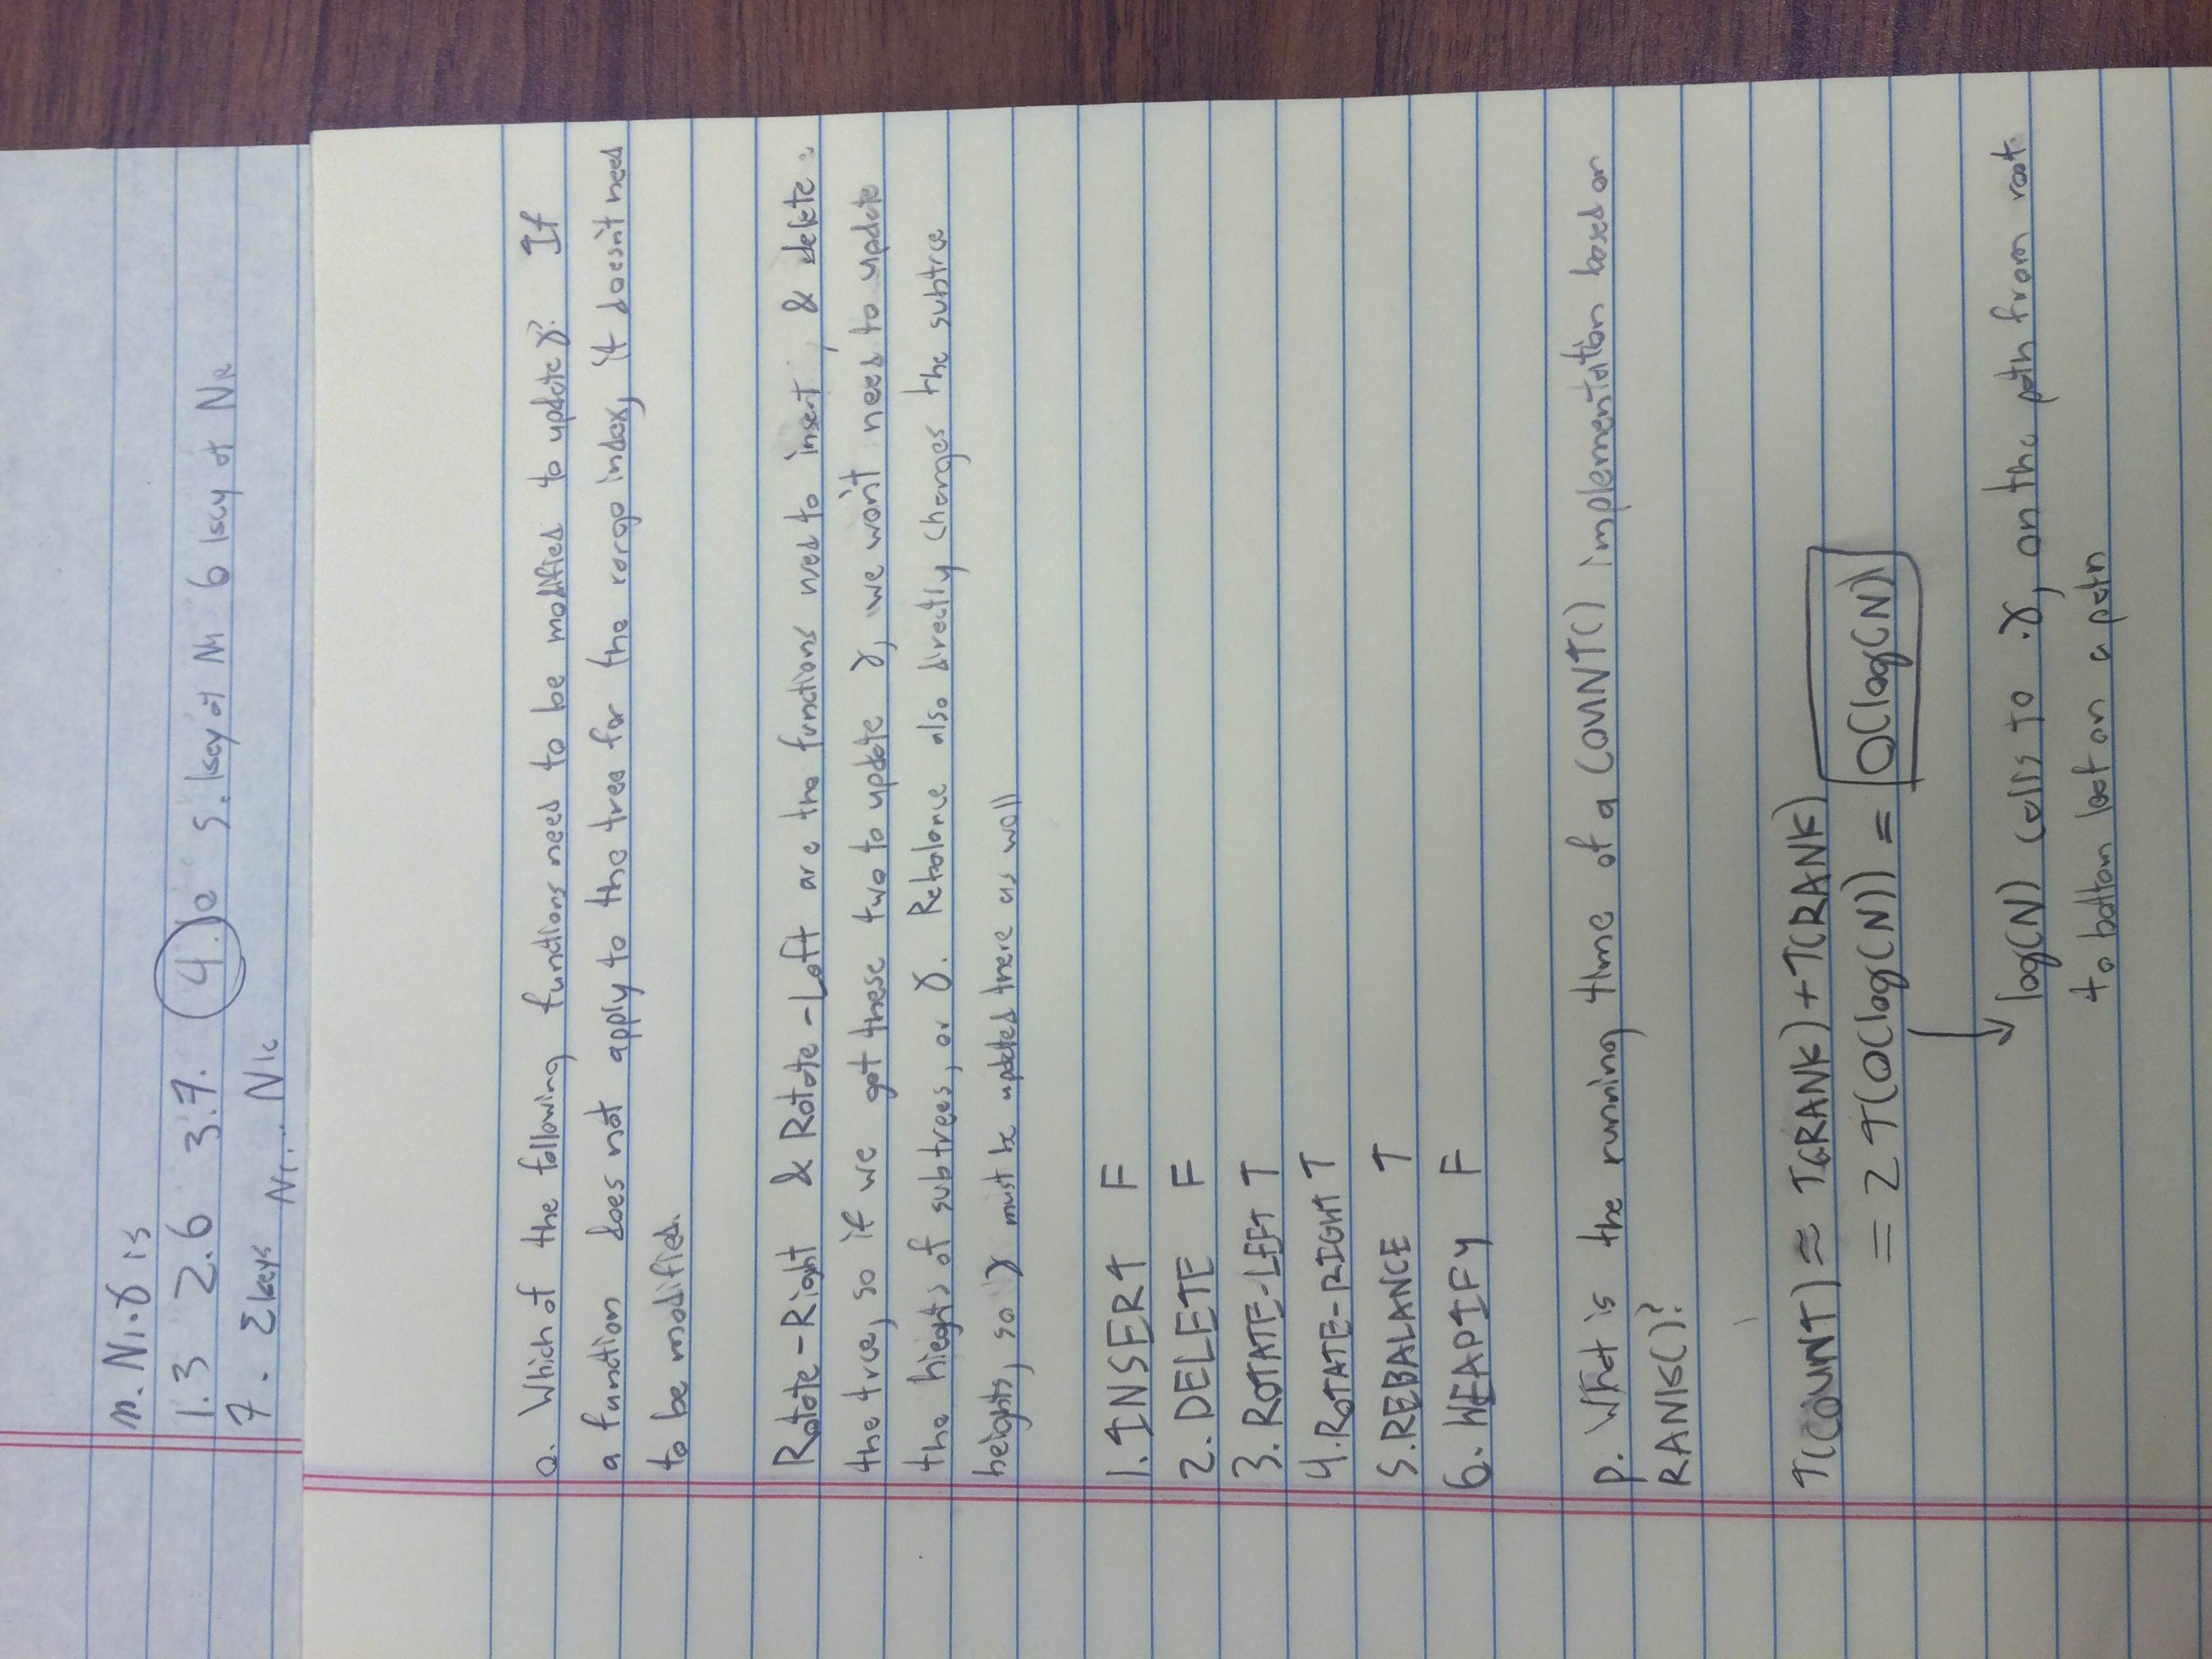 n. N1.γ is
1.3 2.6 3.7. 4. k 5. key of N1 6 key of Nk
7. Σ keys N1... Nk
o. Which of the following functions need to be modified to update γ? If
a function does not apply to the tree for the range index, it doesn't need
to be modified.
Rotate-Right & Rotate-Left are the functions used to insert, & delete
the tree, so if we get these two to update γ, we won't need to update
the hieghts of subtrees, or γ. Rebalance also directly changes the subtree
heights, so γ must be updated there as well
1. INSERT F
2. DELETE F
3. ROTATE-LEFT T
4. ROTATE-RIGHT T
5. REBALANCE T
6. HEAPIFY F
p. What is the running time of a COUNT() implementation based on
RANK()?
T(COUNT) ≈ T(RANK) + T(RANK)
= 2 T(O(log(N)) = O(log(N)
log(N) calls to .γ, on the path from root
to bottom leaf on a path